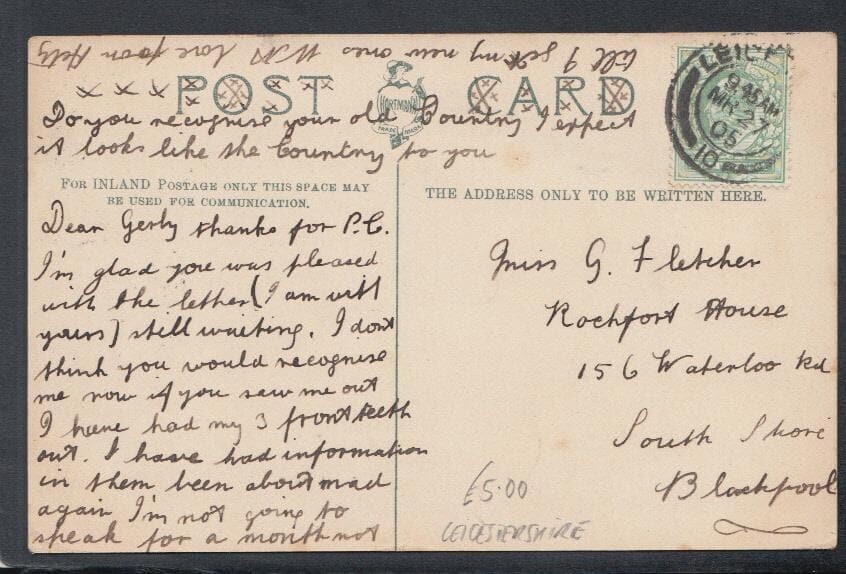 till I get my new ones W.N love from Hetty
x x x x
POST CARD
HARTMANN
TRADE MARK
LEIC
9.45AM
MR 27
05
10
Do you recognise your old Country I expect
it looks like the Country to you
FOR INLAND POSTAGE ONLY THIS SPACE MAY
BE USED FOR COMMUNICATION.
THE ADDRESS ONLY TO BE WRITTEN HERE.
Dear Gerty thanks for P.C.
I'm glad you was pleased
with the letter (I am with
yours) still waiting. I don't
think you would recognise
me now if you saw me out
I have had my 3 front teeth
out. I have had information
in them been about mad
again I'm not going to
speak for a month not
Miss G. Fletcher
Rochfort House
156 Waterloo Rd
South Shore
Blackpool
£5.00
LEICESTERSHIRE